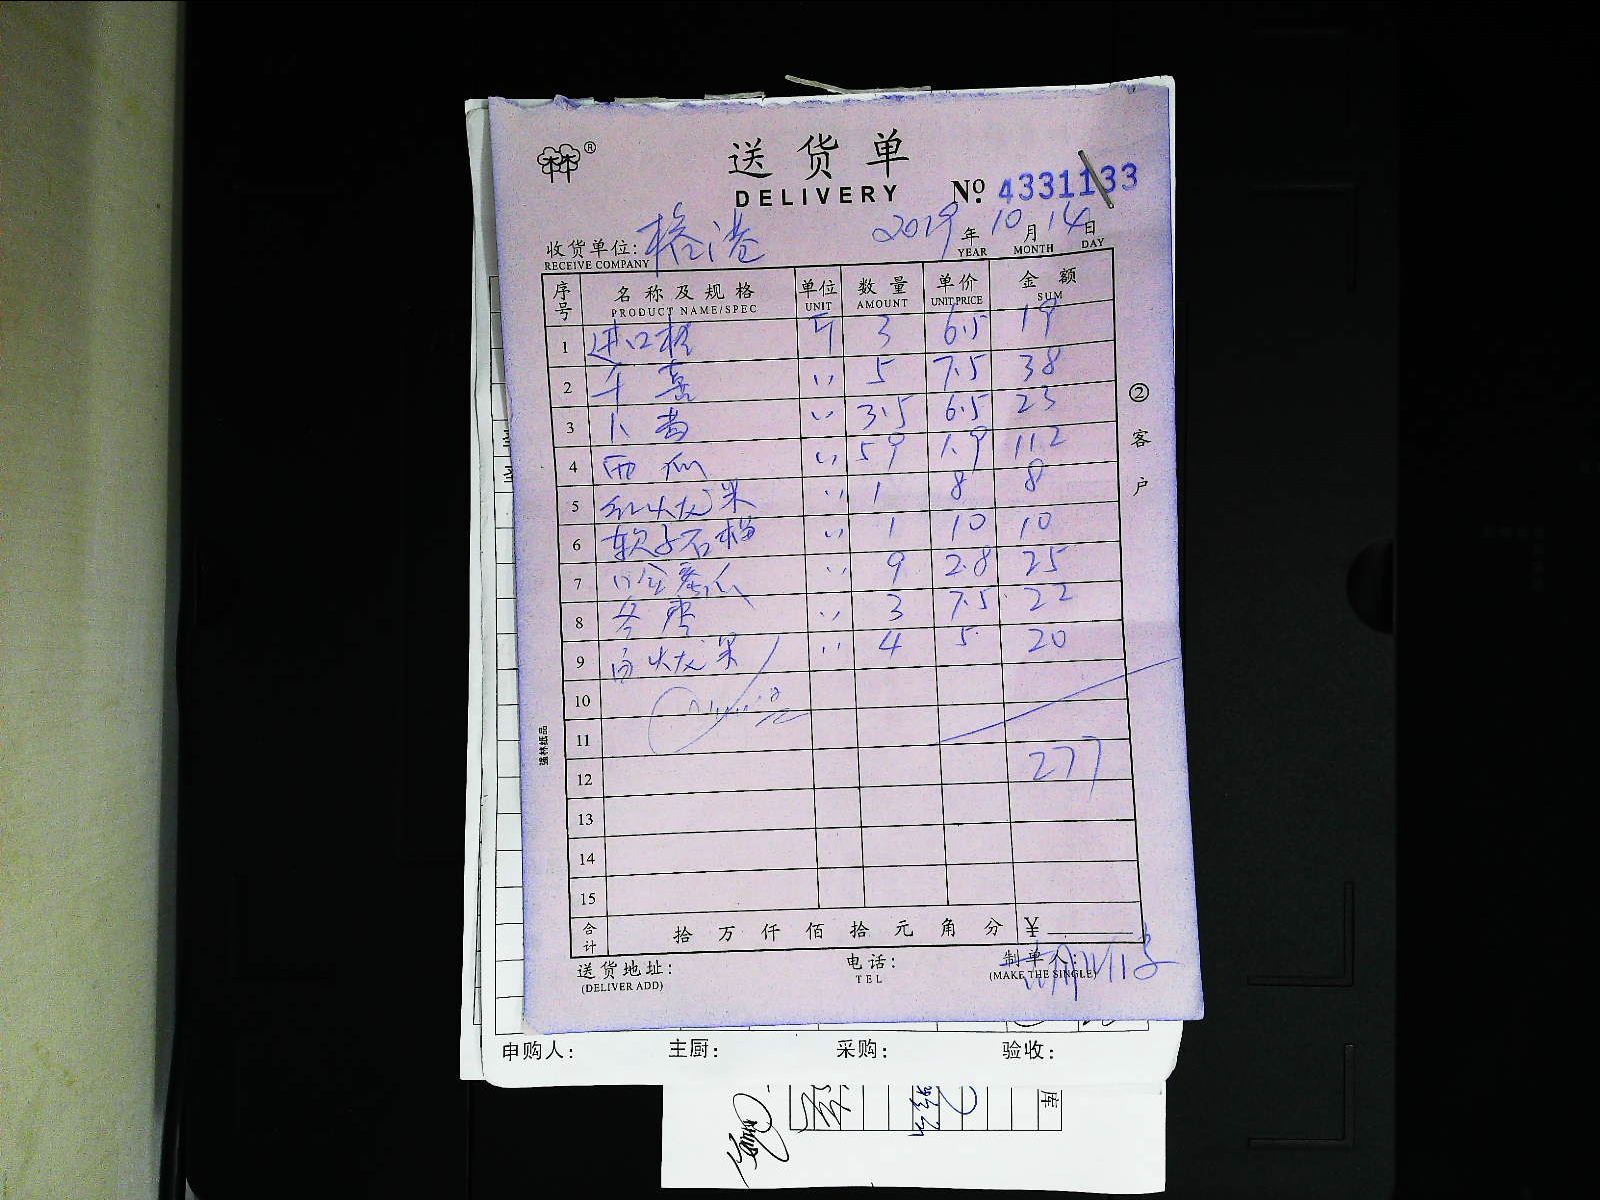 送货单
DELIVERY
№ 4331133
收货单位: 2019 年 10 月 14 日
RECEIVE COMPANY YEAR MONTH DAY
序号 名称及规格 单位 数量 单价 金额
PRODUCT NAME/SPEC UNIT AMOUNT UNIT PRICE SUM
1 进口 斤 3 6.5 19
2 千禧 〃 5 7.5 38
3 〃 3.5 6.5 23
4 西瓜 〃 59 1.9 112
5 红火龙果 〃 1 8 8
6 软子石榴 〃 1 10 10
7 哈密瓜 〃 9 2.8 25
8 冬枣 〃 3 7.5 22
9 白火龙果 〃 4 5 20
10
11
12 277
13
14
15
合计 拾 万 仟 佰 拾 元 角 分 ¥
送货地址: 电话: 制单人:
(DELIVER ADD) TEL (MAKE THE SINGLE)
② 客户
强林纸品
申购人: 主厨: 采购: 验收:
库